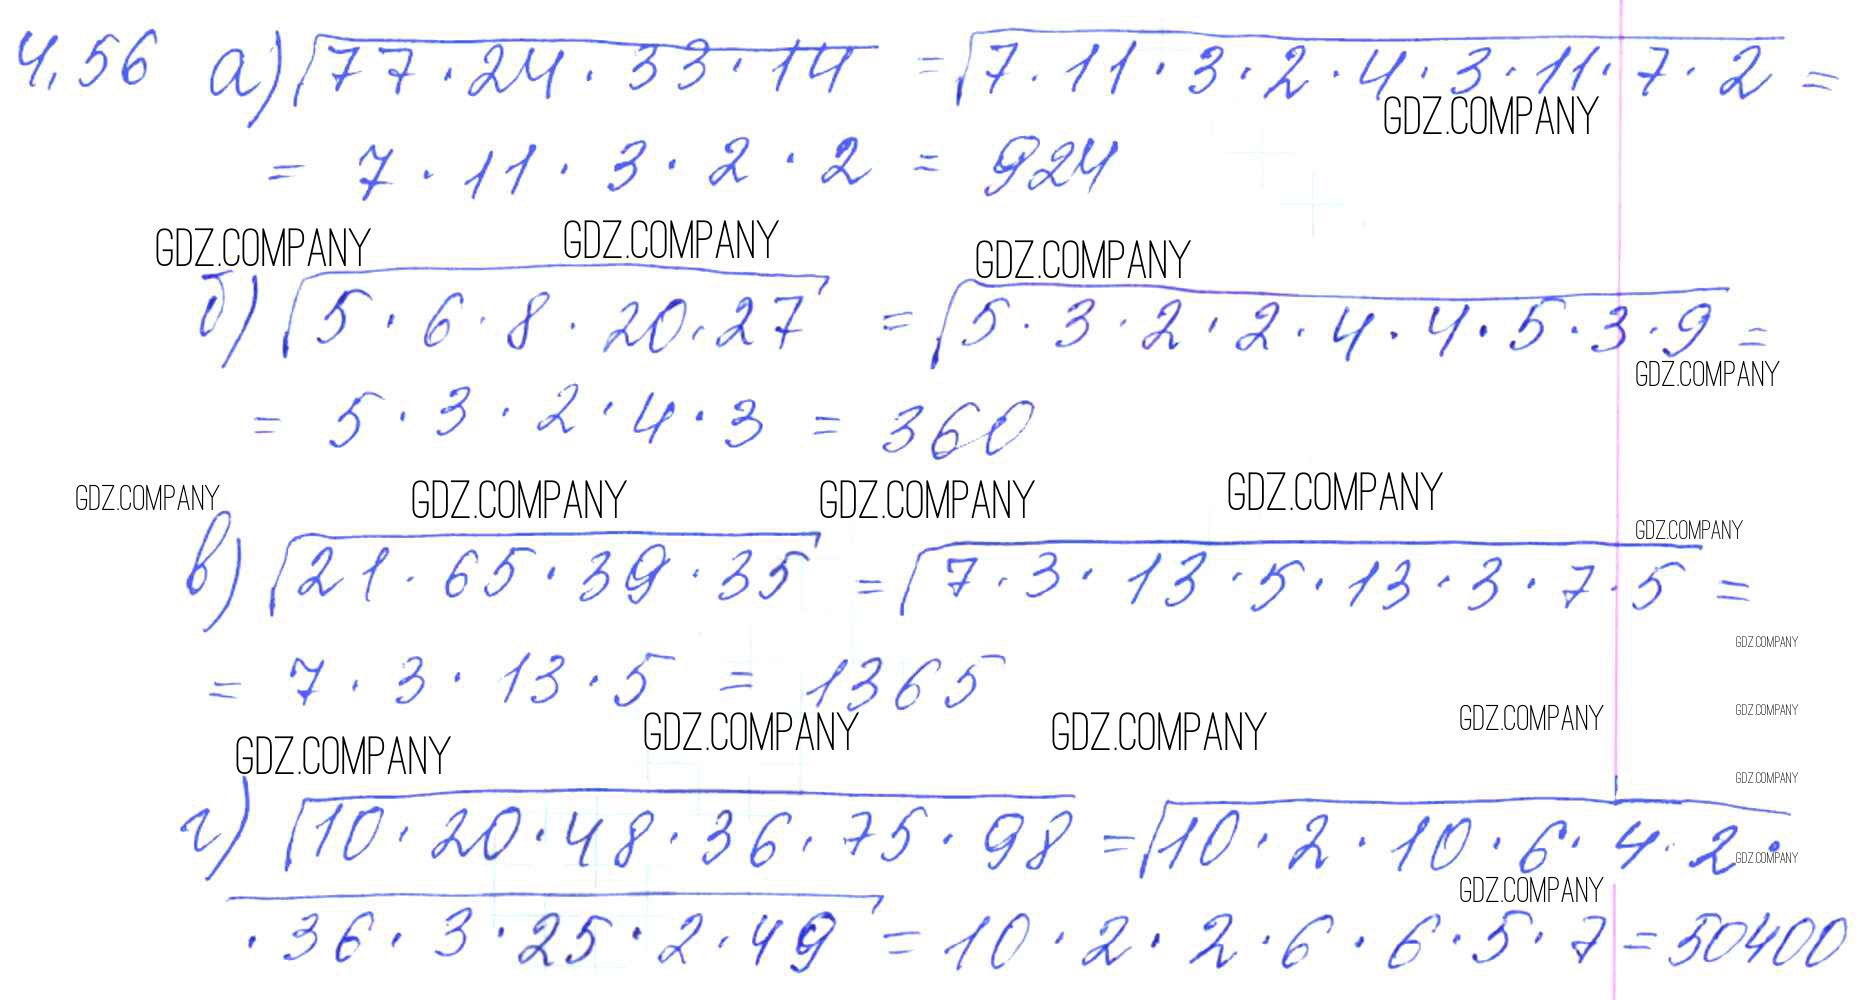 4.56 а) √77·24·33·14 = √7·11·3·2·4·3·11·7·2 =
GDZ.COMPANY
= 7·11·3·2·2 = 924
GDZ.COMPANY GDZ.COMPANY GDZ.COMPANY
б) √5·6·8·20·27 = √5·3·2·2·4·4·5·3·9 =
GDZ.COMPANY
= 5·3·2·4·3 = 360
GDZ.COMPANY GDZ.COMPANY GDZ.COMPANY GDZ.COMPANY
GDZ.COMPANY
в) √21·65·39·35 = √7·3·13·5·13·3·7·5 =
GDZ.COMPANY
= 7·3·13·5 = 1365
GDZ.COMPANY GDZ.COMPANY GDZ.COMPANY GDZ.COMPANY GDZ.COMPANY
GDZ.COMPANY
г) √10·20·48·36·75·98 = √10·2·10·6·4·2·
GDZ.COMPANY
GDZ.COMPANY
·36·3·25·2·49 = 10·2·2·6·6·5·7 = 50400